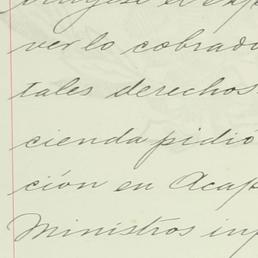 ver lo cobrado
tales derechos
cienda pidió
ción en Acap
Ministros inf